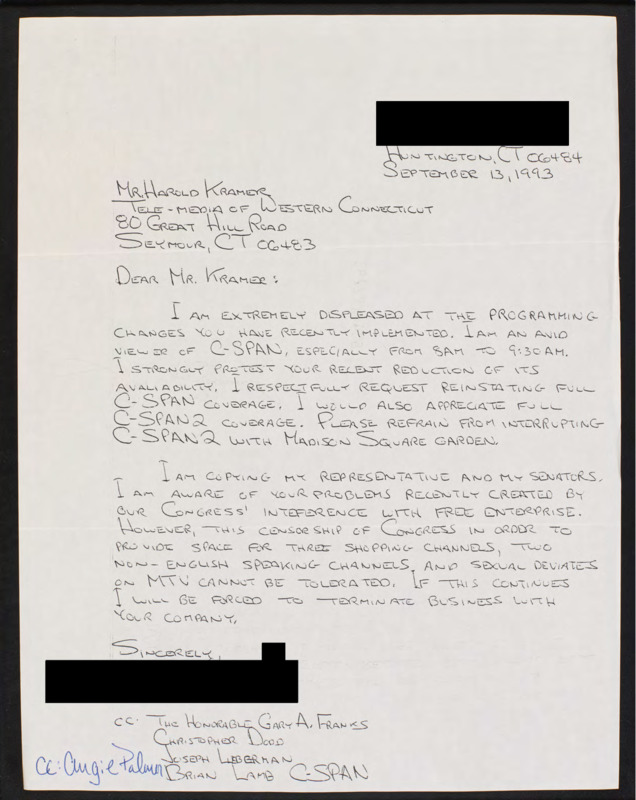 Huntington, CT 06484
September 13, 1993
Mr. Harold Kramer
Tele-Media of Western Connecticut
80 Great Hill Road
Seymour, CT 06483
Dear Mr. Kramer:
I am extremely displeased at the programming
changes you have recently implemented. I am an avid
viewer of C-SPAN, especially from 8am to 9:30am.
I strongly protest your recent reduction of its
avaliability. I respectfully request reinstating full
C-SPAN coverage. I would also appreciate full
C-SPAN2 coverage. Please refrain from interrupting
C-SPAN2 with Madison Square Garden.
I am copying my representative and my senators.
I am aware of your problems recently created by
our Congress' inteference with free enterprise.
However, this censorship of Congress in order to
provide space for three shopping channels, two
non-English speaking channels, and sexual deviates
on MTV cannot be tolerated. If this continues
I will be forced to terminate business with
your company.
Sincerely,
cc: The Honorable Gary A. Franks
Christopher Dodd
Joseph Lieberman
cc: Angie Palmer Brian Lamb C-SPAN